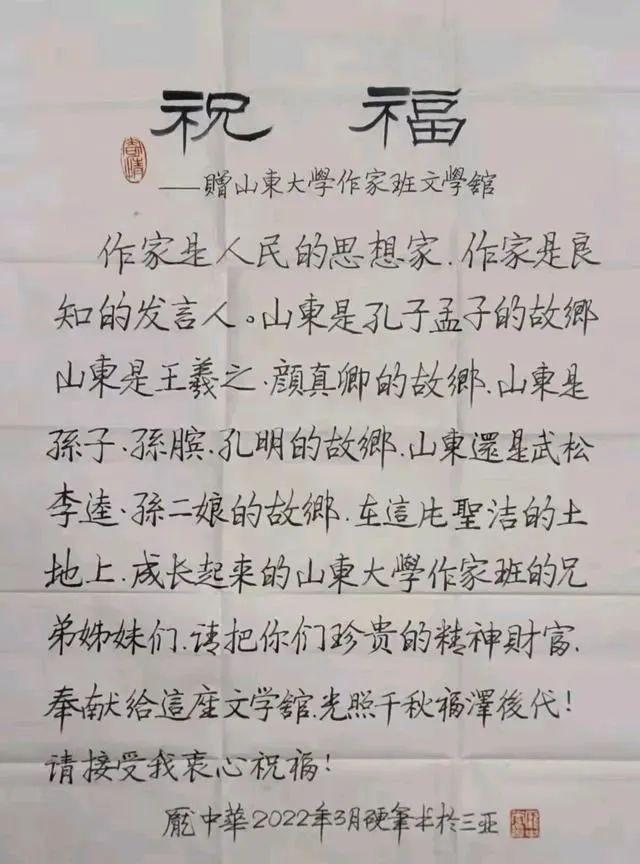 祝福
春情
——贈山東大學作家班文學舘
作家是人民的思想家.作家是良
知的发言人。山東是孔子孟子的故鄉
山東是王羲之.顔真卿的故鄉.山東是
孫子.孫臏.孔明的故鄉.山東還是武松
李逵.孫二娘的故鄉.在這片聖洁的土
地上.成长起来的山東大學作家班的兄
弟姊妹们.请把你们珍贵的精神財富.
奉献给這座文学舘.光照千秋福澤後代!
请接受我衷心祝福!
龐中華2022年3月硬筆书於三亚